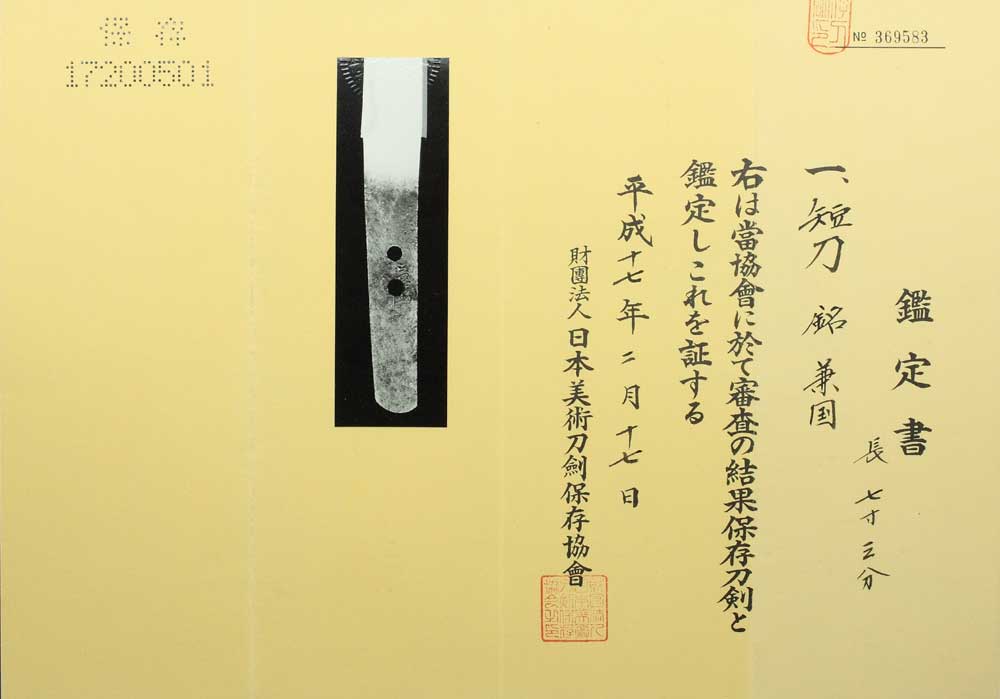 保存
17200501
№ 369583
鑑定書
一、短刀 銘 兼国
長 七寸三分
右は當協會に於て審査の結果保存刀剣と
鑑定しこれを証する
平成十七年二月十七日
財團法人 日本美術刀劍保存協會